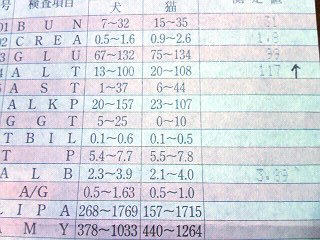 号 検査項目 犬 猫 測定値
01 B U N 7~32 15~35 31
02 C R E A 0.5~1.6 0.9~2.6 1.8
03 G L U 67~132 75~134 99
04 A L T 13~100 20~108 117 ↑
A S T 1~37 6~44
A L K P 20~157 23~107
G G T 5~25 0~10
T B I L 0.1~0.6 0.1~0.5
T P 5.4~7.7 5.5~7.8
A L B 2.3~3.9 2.1~4.0
A/G 0.5~1.63 0.5~1.0
L I P A 268~1769 157~1715
A M Y 378~1033 440~1264